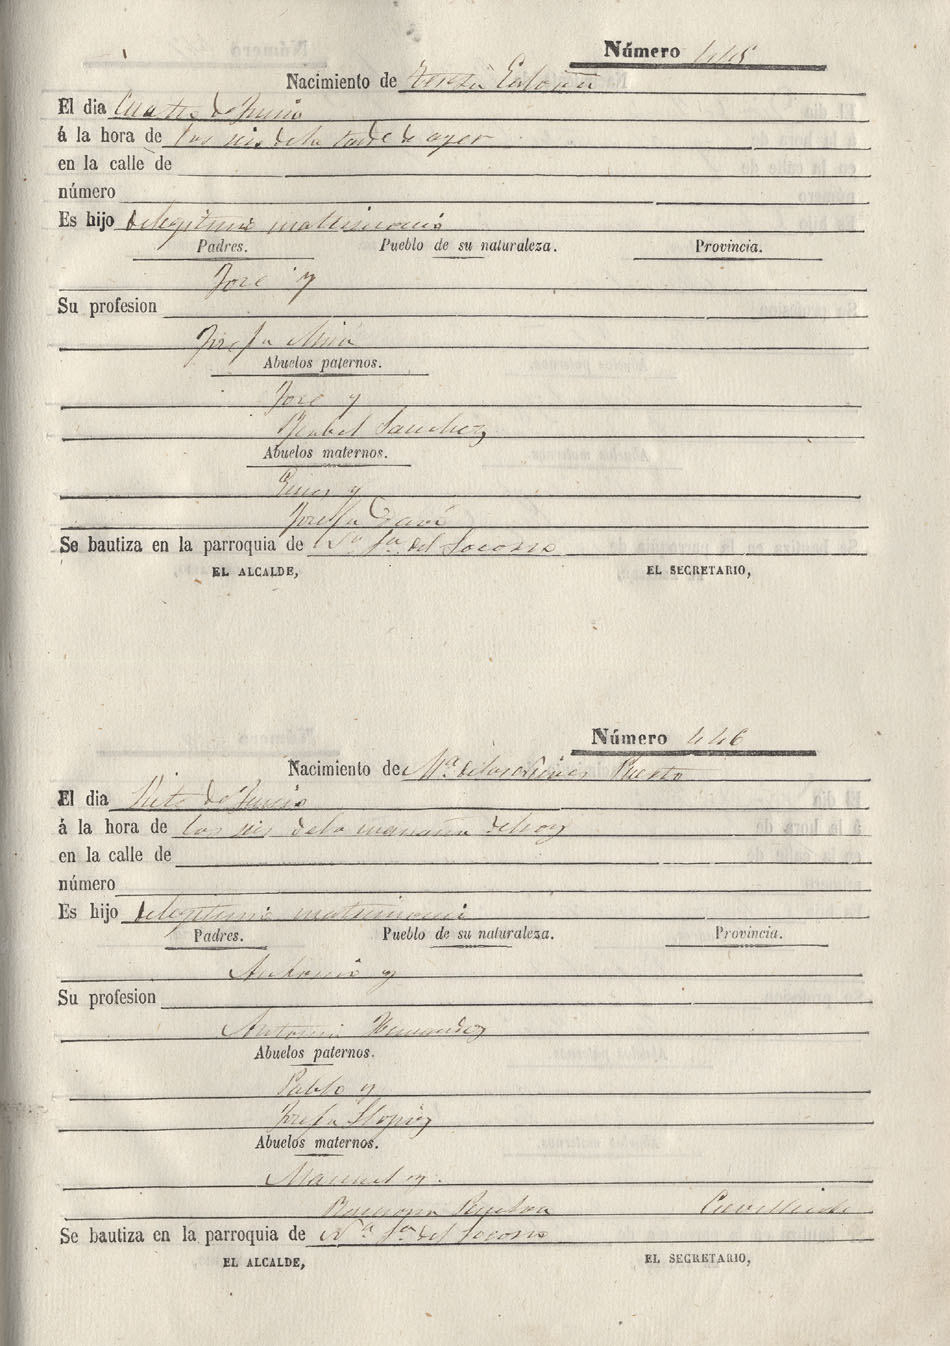 Número 445
Nacimiento de Teresa
El dia Cuatro de Junio
á la hora de las seis de la tarde de ayer
en la calle de
número
Es hijo de legitimo matrimonio
Padres. Pueblo de su naturaleza. Provincia.
José y
Su profesion
Josefa Mira
Abuelos paternos.
José y
Isabel Sanchez
Abuelos maternos.
Gines y
Josefa
Se bautiza en la parroquia de Na Sa del Socorro
EL ALCALDE, EL SECRETARIO,
Número 446
Nacimiento de Ma de los Puerto
El dia Siete de Junio
á la hora de las seis de la mañana de hoy
en la calle de
número
Es hijo de legitimo matrimonio
Padres. Pueblo de su naturaleza. Provincia.
Antonio y
Su profesion
Antonia Hernandez
Abuelos paternos.
Pablo y
Josefa Llopiz
Abuelos maternos.
Manuel y
Ramona Crevillente
Se bautiza en la parroquia de Na Sa del Socorro
EL ALCALDE, EL SECRETARIO,